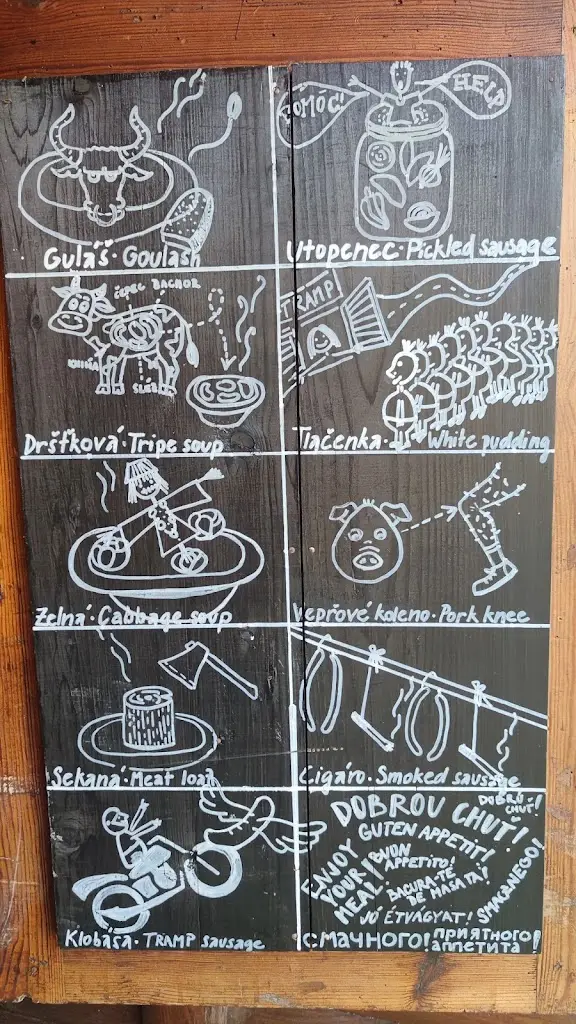 POMÓC!
HELP
Guláš · Goulash
Utopenec · Pickled sausage
ČEPEC BACHOR
KNIHA
SLEZ
Dršťková · Tripe soup
TRAMP
Tlačenka · White pudding
Zelná · Cabbage soup
Vepřové koleno · Pork knee
Sekaná · Meat loaf
Cigáro · Smoked sausage
Klobása · TRAMP sausage
DOBROU CHUŤ!
DOBRÚ CHUŤ!
GUTEN APPETIT!
ENJOY YOUR MEAL
BUON APPETITO!
BACURA-TE DE MASA TA!
SMACZNEGO!
JÓ ÉTVÁGYAT!
СМАЧНОГО!
ПРИЯТНОГО АППЕТИТА!